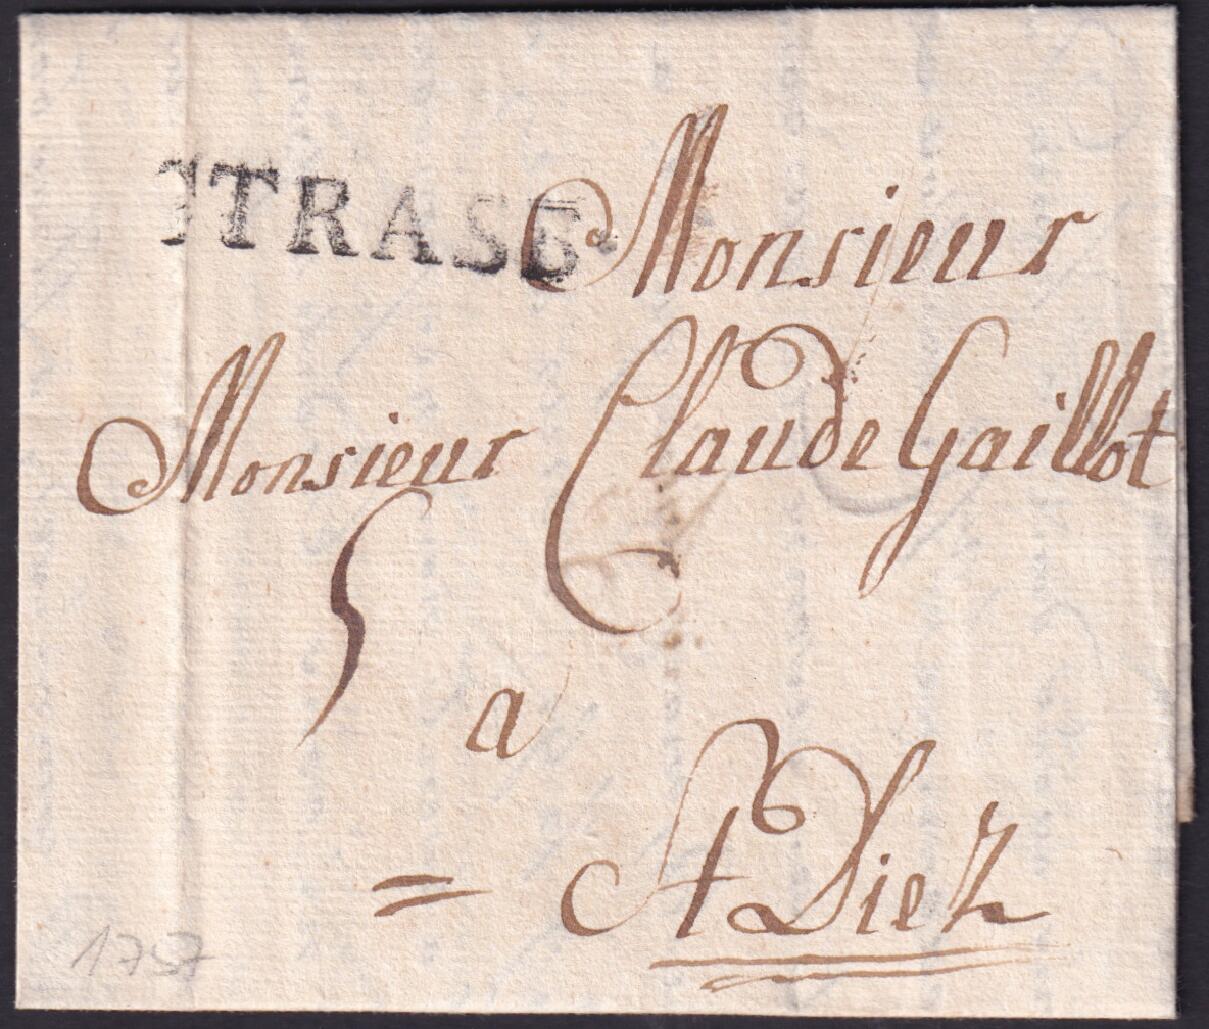 STRASB.
Monsieur
Monsieur Claude Gaillot
5
a
St Diez
1757